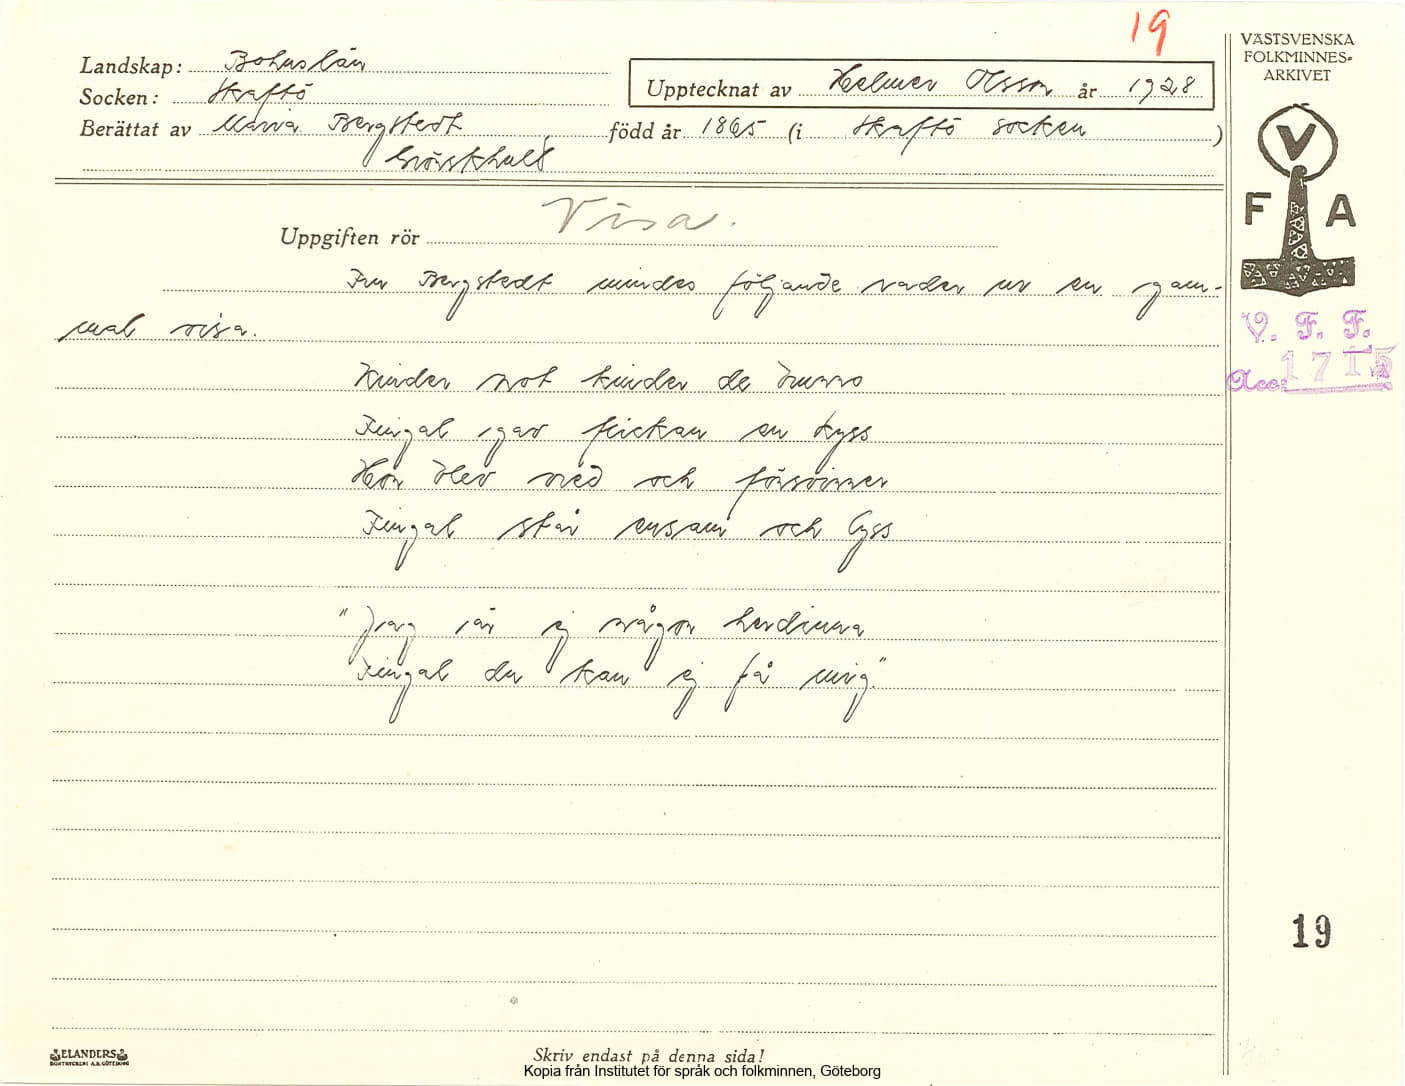 19
Landskap: Bohuslän
Socken: Skaftö
Upptecknat av Helmer Olsson år 1928
Berättat av Maria Bergstedt, född år 1865 (i Skaftö socken)
VÄSTSVENSKA
FOLKMINNES-
ARKIVET
V
F A
Uppgiften rör Visa.
Fru Bergstedt mindes följande rader ur en gam-
mal visa.
V. F. F.
Acc: 1715
Kinder mot kinder de brunno
Fingal gav flickan en kyss
Hon blev vred och försvinner
Fingal står ensam och lyss
"Jag är ej någon herdinna
Fingal du kan ej få mig."
19
ELANDERS
BOKTRYCKERI A.B. GÖTEBORG
Skriv endast på denna sida!
Kopia från Institutet för språk och folkminnen, Göteborg